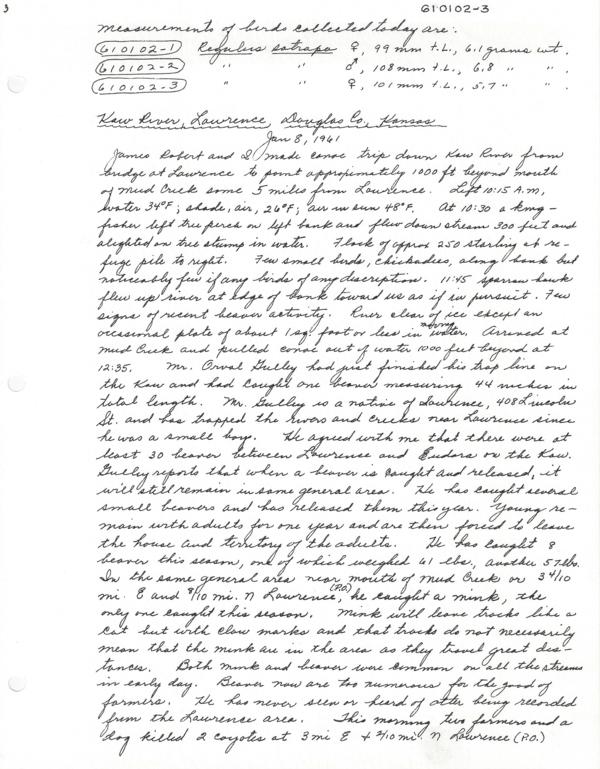 3
610102-3
measurements of birds collected today are:
610102-1 Regulus satrapa ♀, 99 mm t.L., 6.1 grams wt.
610102-2 " " ♂, 108 mm t.L., 6.8 " " .
610102-3 " " ♀, 101 mm t.L., 5.7 " " .
Kaw River, Lawrence, Douglas Co., Kansas
Jan 8, 1961
James Robert and I made canoe trip down Kaw River from
bridge at Lawrence to point approximately 1000 ft beyond mouth
of Mud Creek some 5 miles from Lawrence. Left 10:15 A.M,
water 34°F; shade, air, 26°F; air in sun 48°F. At 10:30 a king-
fisher left tree perch on left bank and flew down stream 300 feet and
alighted on tree stump in water. Flock of approx 250 starling at re-
fuge pile to right. Few small birds, chickadees, along bank but
noticeably few if any birds of any discription. 11:45 sparrow hawk
flew up river at edge of bank toward us as if in pursuit. Few
signs of recent beaver activity. River clear of ice except an
occasional plate of about 1 sq. foot or less in moving water. Arrived at
Mud Creek and pulled canoe out of water 1000 feet beyond at
12:35. Mr. Orval Gulley had just finished his trap line on
the Kaw and had caught one beaver measuring 44 inches in
total length. Mr. Gulley is a native of Lawrence, 408 Lincoln
St. and has trapped the rivers and creeks near Lawrence since
he was a small boy. He agreed with me that there were at
least 30 beaver between Lawrence and Eudora on the Kaw.
Gulley reports that when a beaver is caught and released, it
will still remain in same general area. He has caught several
small beavers and has released them this year. Young re-
main with adults for one year and are then forced to leave
the house and territory of the adults. He has caught 8
beaver this season, one of which weighed 61 lbs., another 57 lbs.
In the same general area near mouth of Mud Creek or 3 4/10
mi. E and 8/10 mi. N Lawrence (P.O.), he caught a mink, the
only one caught this season. Mink will leave tracks like a
cat but with claw marks and that tracks do not necessarily
mean that the mink are in the area as they travel great dis-
tances. Both mink and beaver were common on all the streams
in early day. Beaver now are too numerous for the good of
farmers. He has never seen or heard of otter being recorded
from the Lawrence area. This morning two farmers and a
dog killed 2 coyotes at 3 mi E + 2/10 mi. N Lawrence (P.O.)